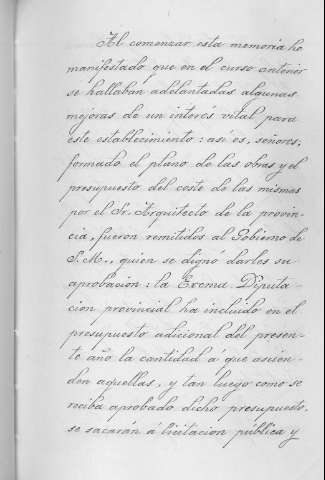 Al comenzar esta memoria he
manifestado que en el curso anterior
se hallaban adelantadas algunas
mejoras de un interés vital para
este establecimiento: así es, señores,
formado el plano de las obras y el
presupuesto del coste de las mismas
por el Sr. Arquitecto de la provin-
cia, fueron remitidos al Gobierno de
S. M., quien se dignó darles su
aprobacion: la Excma. Diputa-
cion provincial ha incluido en el
presupuesto adicional del presen-
te año la cantidad á que ascien-
den aquellas, y tan luego como se
reciba aprobado dicho presupuesto,
se sacarán á licitacion pública y